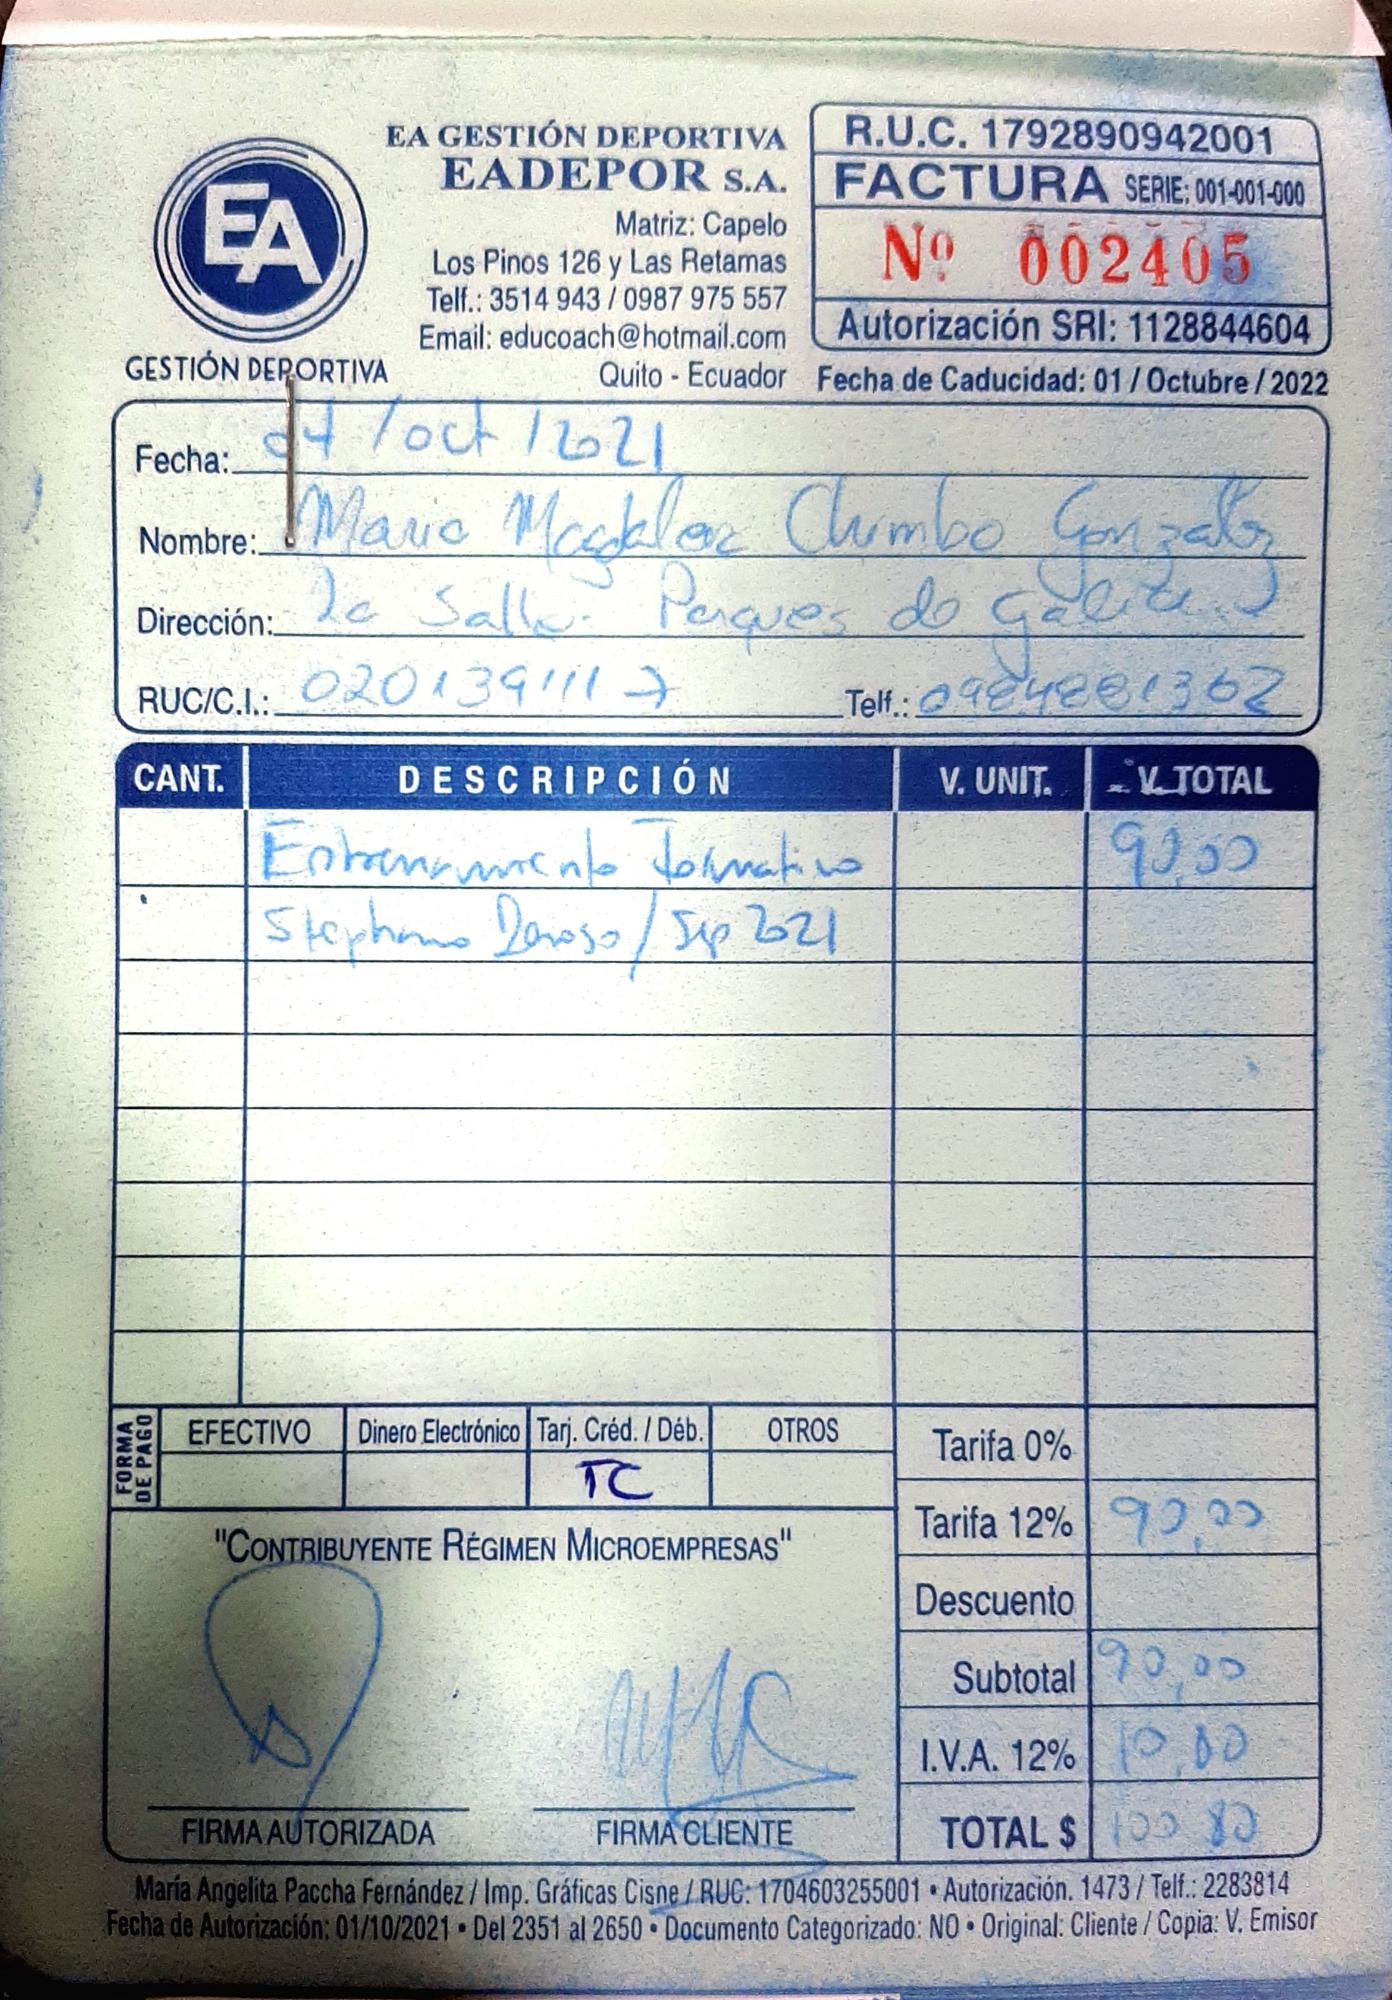 EA
GESTIÓN DEPORTIVA
EA GESTIÓN DEPORTIVA
EADEPOR S.A.
Matriz: Capelo
Los Pinos 126 y Las Retamas
Telf.: 3514 943 / 0987 975 557
Email: educoach@hotmail.com
Quito - Ecuador
R.U.C. 1792890942001
FACTURA SERIE: 001-001-000
Nº 002405
Autorización SRI: 1128844604
Fecha de Caducidad: 01 / Octubre / 2022
Fecha: 04 / oct / 2021
Nombre: Maria Magdalena Chimbo Gonzalez
Dirección: La Salle. Parques de
RUC/C.I.: 0201391117 Telf.:
CANT. DESCRIPCIÓN V. UNIT. V. TOTAL
Entrenamiento Formativo 90,00
Stephano / Sep 2021
FORMA DE PAGO EFECTIVO Dinero Electrónico Tarj. Créd. / Déb. OTROS
TC
Tarifa 0%
Tarifa 12% 90,00
Descuento
Subtotal 90,00
I.V.A. 12% 10,80
TOTAL $ 100 80
"CONTRIBUYENTE RÉGIMEN MICROEMPRESAS"
FIRMA AUTORIZADA FIRMA CLIENTE
María Angelita Paccha Fernández / Imp. Gráficas Cisne / RUC: 1704603255001 • Autorización. 1473 / Telf.: 2283814
Fecha de Autorización: 01/10/2021 • Del 2351 al 2650 • Documento Categorizado: NO • Original: Cliente / Copia: V. Emisor